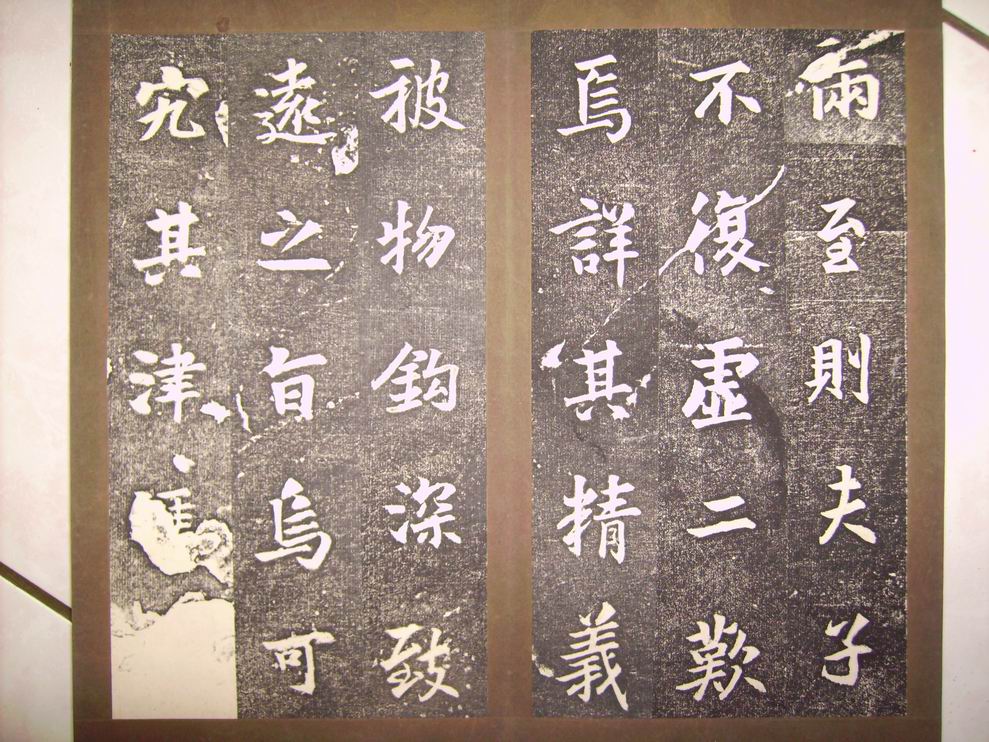 兩至則夫子
不復虛二歎
焉詳其精義
被物鈎深致
遠之旨烏可
究其津涯